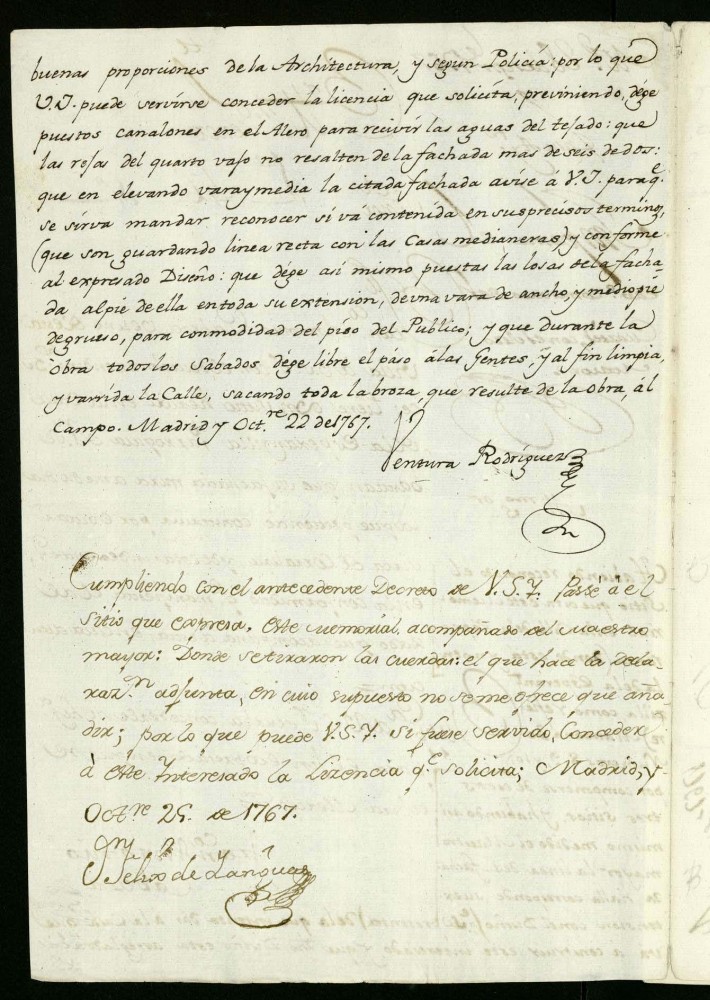 buenas proporciones de la Architectura, y segun Policía: por lo que
V.I. puede servirse conceder la licencia que solicíta, previniendo, dége
puestos canalones en el Alero para recivír las aguas del tejado: que
las rejas del quarto vajo no resalten de la fachada mas de seis dedos:
que en elevando vara y media la citada fachada avise á V.I. para q.e
se sirva mandar reconocer si vá contenida en sus precisos termin.os,
(que son guardando linea recta con las Casas medianeras) y conforme
al expresado Diseño: que dége así mismo puestas las losas de la facha-
da al pie de ella en toda su extension, de vna vara de ancho, y medio pié
de grueso, para conmodidad del píso del Publico; y que durante la
obra todos los Sabados dége libre el páso á las Gentes, y al fin limpia,
y varrída la Calle, sacando toda la broza, que resulte de la obra, ál
Campo. Madrid y Oct.re 22 de 1767.
Ventura Rodríguez
Cumpliendo con el antecedente Decreto de V.S.I. Passé á el
sitio que expresa, este memorial, acompañado del Maestro
mayor: Donde se tiraron las cuerdas: el que hace la Decla-
raz.n adjunta, en cuio supuesto no se me ofrece que aña-
dir; por lo que puede V.S.I. si fuese servido, Conceder
à este Interesado la Lizencia q.e solicita; Madrid, y
Oct.re 25. de 1767.
Felix de